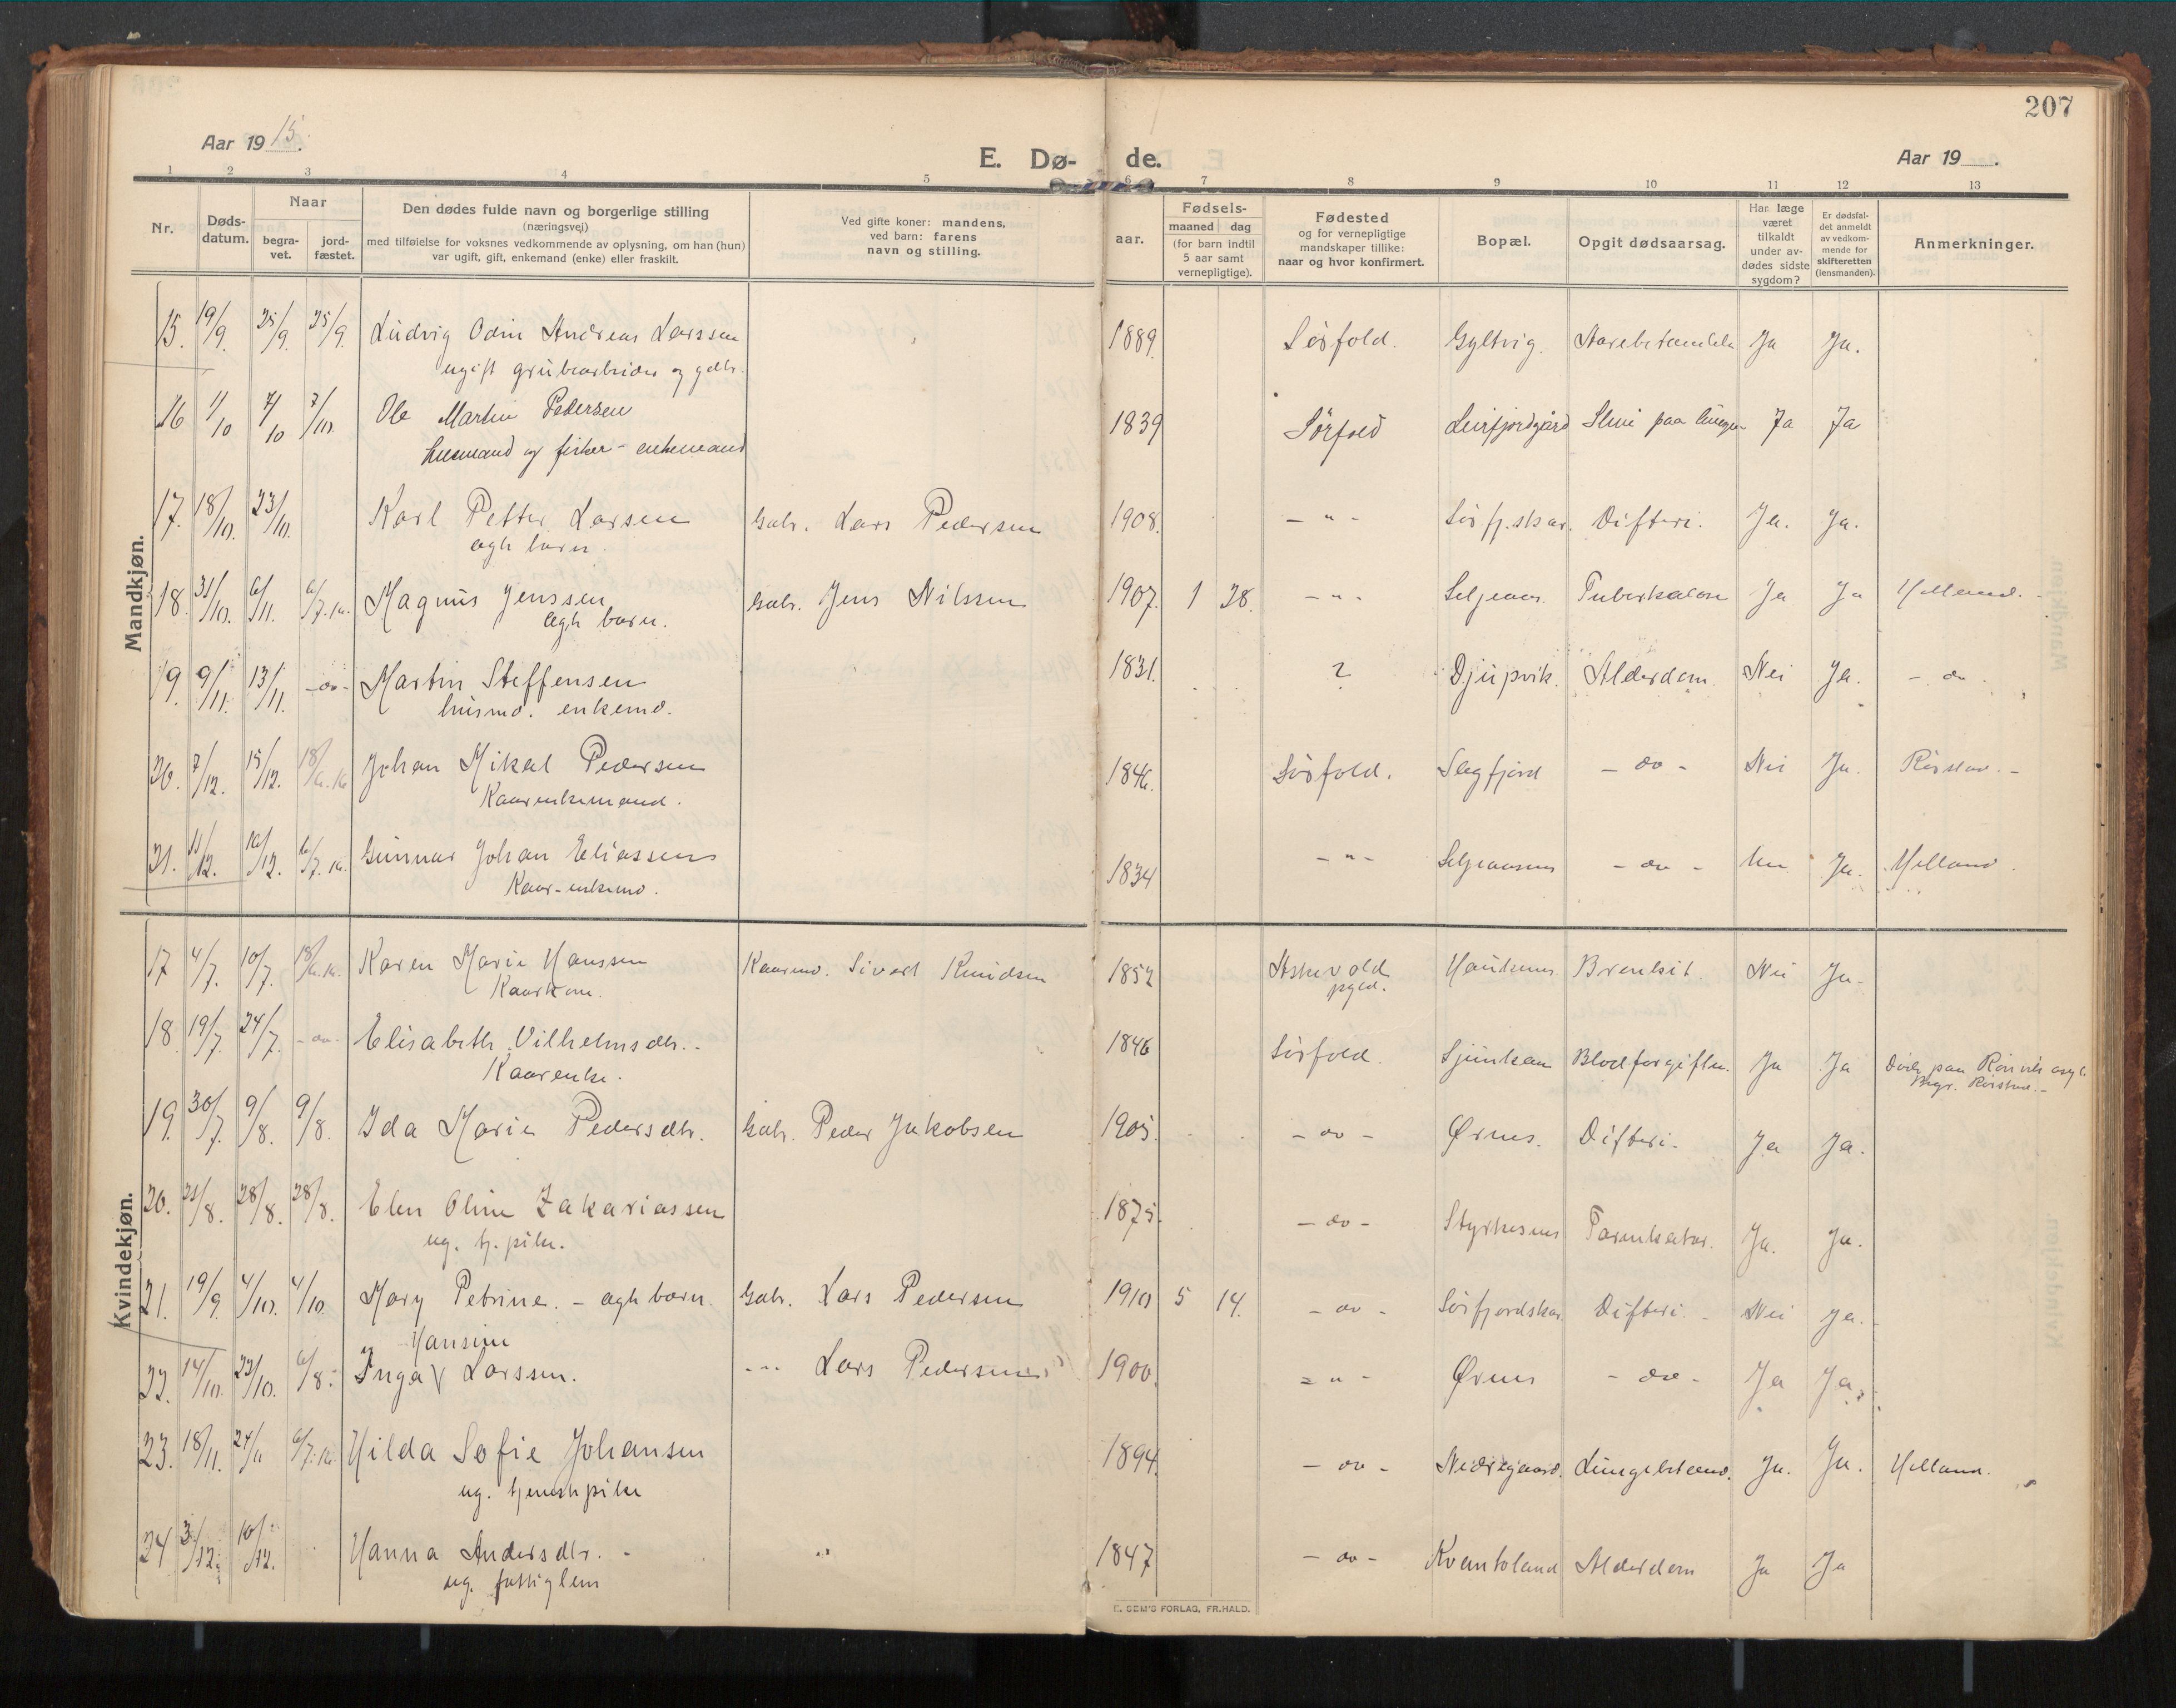 207
Aar 19 15.
E. Dø- de.
Aar 19 .
1 2 3 4 5 6 7 8 9 10 11 12 13
Nr.
Døds-
datum.
Naar
begra-
vet.
jord-
fæstet.
Den dødes fulde navn og borgerlige stilling
(næringsvei)
med tilføielse for voksnes vedkommende av oplysning, om han (hun)
var ugift, gift, enkemand (enke) eller fraskilt.
Ved gifte koner: mandens,
ved barn: farens
navn og stilling.
aar.
Fødsels-
maaned dag
(for barn indtil
5 aar samt
vernepligtige).
Fødested
og for vernepligtige
mandskaper tillike:
naar og hvor konfirmert.
Bopæl.
Opgit dødsaarsag.
Har læge
været
tilkaldt
under av-
dødes sidste
sygdom?
Er dødsfal-
det anmeldt
av vedkom-
mende for
skifteretten
(lensmanden).
Anmerkninger.
Mandkjøn.
15. 19/9. 25/9. 25/9. Ludvig Odin Andreas Larssen 1889. Sörfold. Gyltvig. Ja Ja.
ugift grubearbeider og gdbr.
16 1/10 7/10 7/10. Ole Martin Pedersen 1839 Sörfold Leirfjordgård Slim paa lungen Ja Ja
husmand og fisker - enkemand
17. 18/10. 23/10. Karl Petter Larsen Gabr. Lars Pedersen 1908. - " - Sörfj.skar. Difteri. Ja. Ja.
agh barn.
18. 31/10. 6/11. 6/7.16. Magnus Jenssen Gabr. Jens Nilssen 1907. 1 28. - " - Seljeaas. Tuberkulose Ja Ja Helland.
agh barn.
19. 9/11. 13/11. - do - Martin Steffensen 1831. ? Djupvik. Alderdom. Nei Ja. - do -
husmd. enkemd.
20. 7/12. 15/12. 18/6.16 Johan Mikal Pedersen 1846. Sörfold. Slagfjord - do - Nei Ja. Rörstad. -
Kaarenkemand.
21. 11/12. 16/12. 6/7.16. Gunnar Johan Eliassen 1834 - " - Seljeaasen - do - Ja. Helland.
Kaar-enkemd.
Kvindekjøn.
17 4/7. 10/7. 18/6.16. Karen Marie Hanssen Kaarmd. Sivert Knudsen 1852 Askvold Haukenes Brenksit. Nei Ja.
Kaarkone. pgld.
18. 19/7. 24/7. - do - Elisabeth Vilhelmsdtr. 1846 Sörfold. Sjunkan Blodforgiftn. Ja Ja Död paa Rönvik asyl.
Kaarenke. Begr. Rörstad. -
19. 30/7. 9/8. 9/8. Ida Marie Pedersdtr. Gabr. Peder Jakobsen 1905. - do - Ørnes. Difteri. Ja Ja.
20. 21/8. 28/8. 28/8. Elen Oline Zakariassen 1875. - do - Styrkesnes Tarmkatar. Ja. Ja.
ug. tj. pike.
21. 19/9. 4/10. 4/10 Mary Petrine. - agh barn. Gabr. Lars Pedersen 1910 5 14. - do - Sörfjordskar. Difteri. - Nei Ja.
Hansine
22. 14/10. 23/10. 6/8. Inga V Larssen. - " - Lars Pedersen 1900. - " - Ørnes - do - Ja Ja.
23. 18/11. 24/11 6/7.16. Hilda Sofie Johansen 1894. - do - Nedregaard. Lungebetænd. Ja. Ja. Helland.
ug. tjenestpike
24 3/12. 10/12. Hanna Andersdtr. - 1847 - do - Kvantoland Alderdom Ja Ja
ug. fattiglem
E. SEM'S FORLAG, FR.HALD.